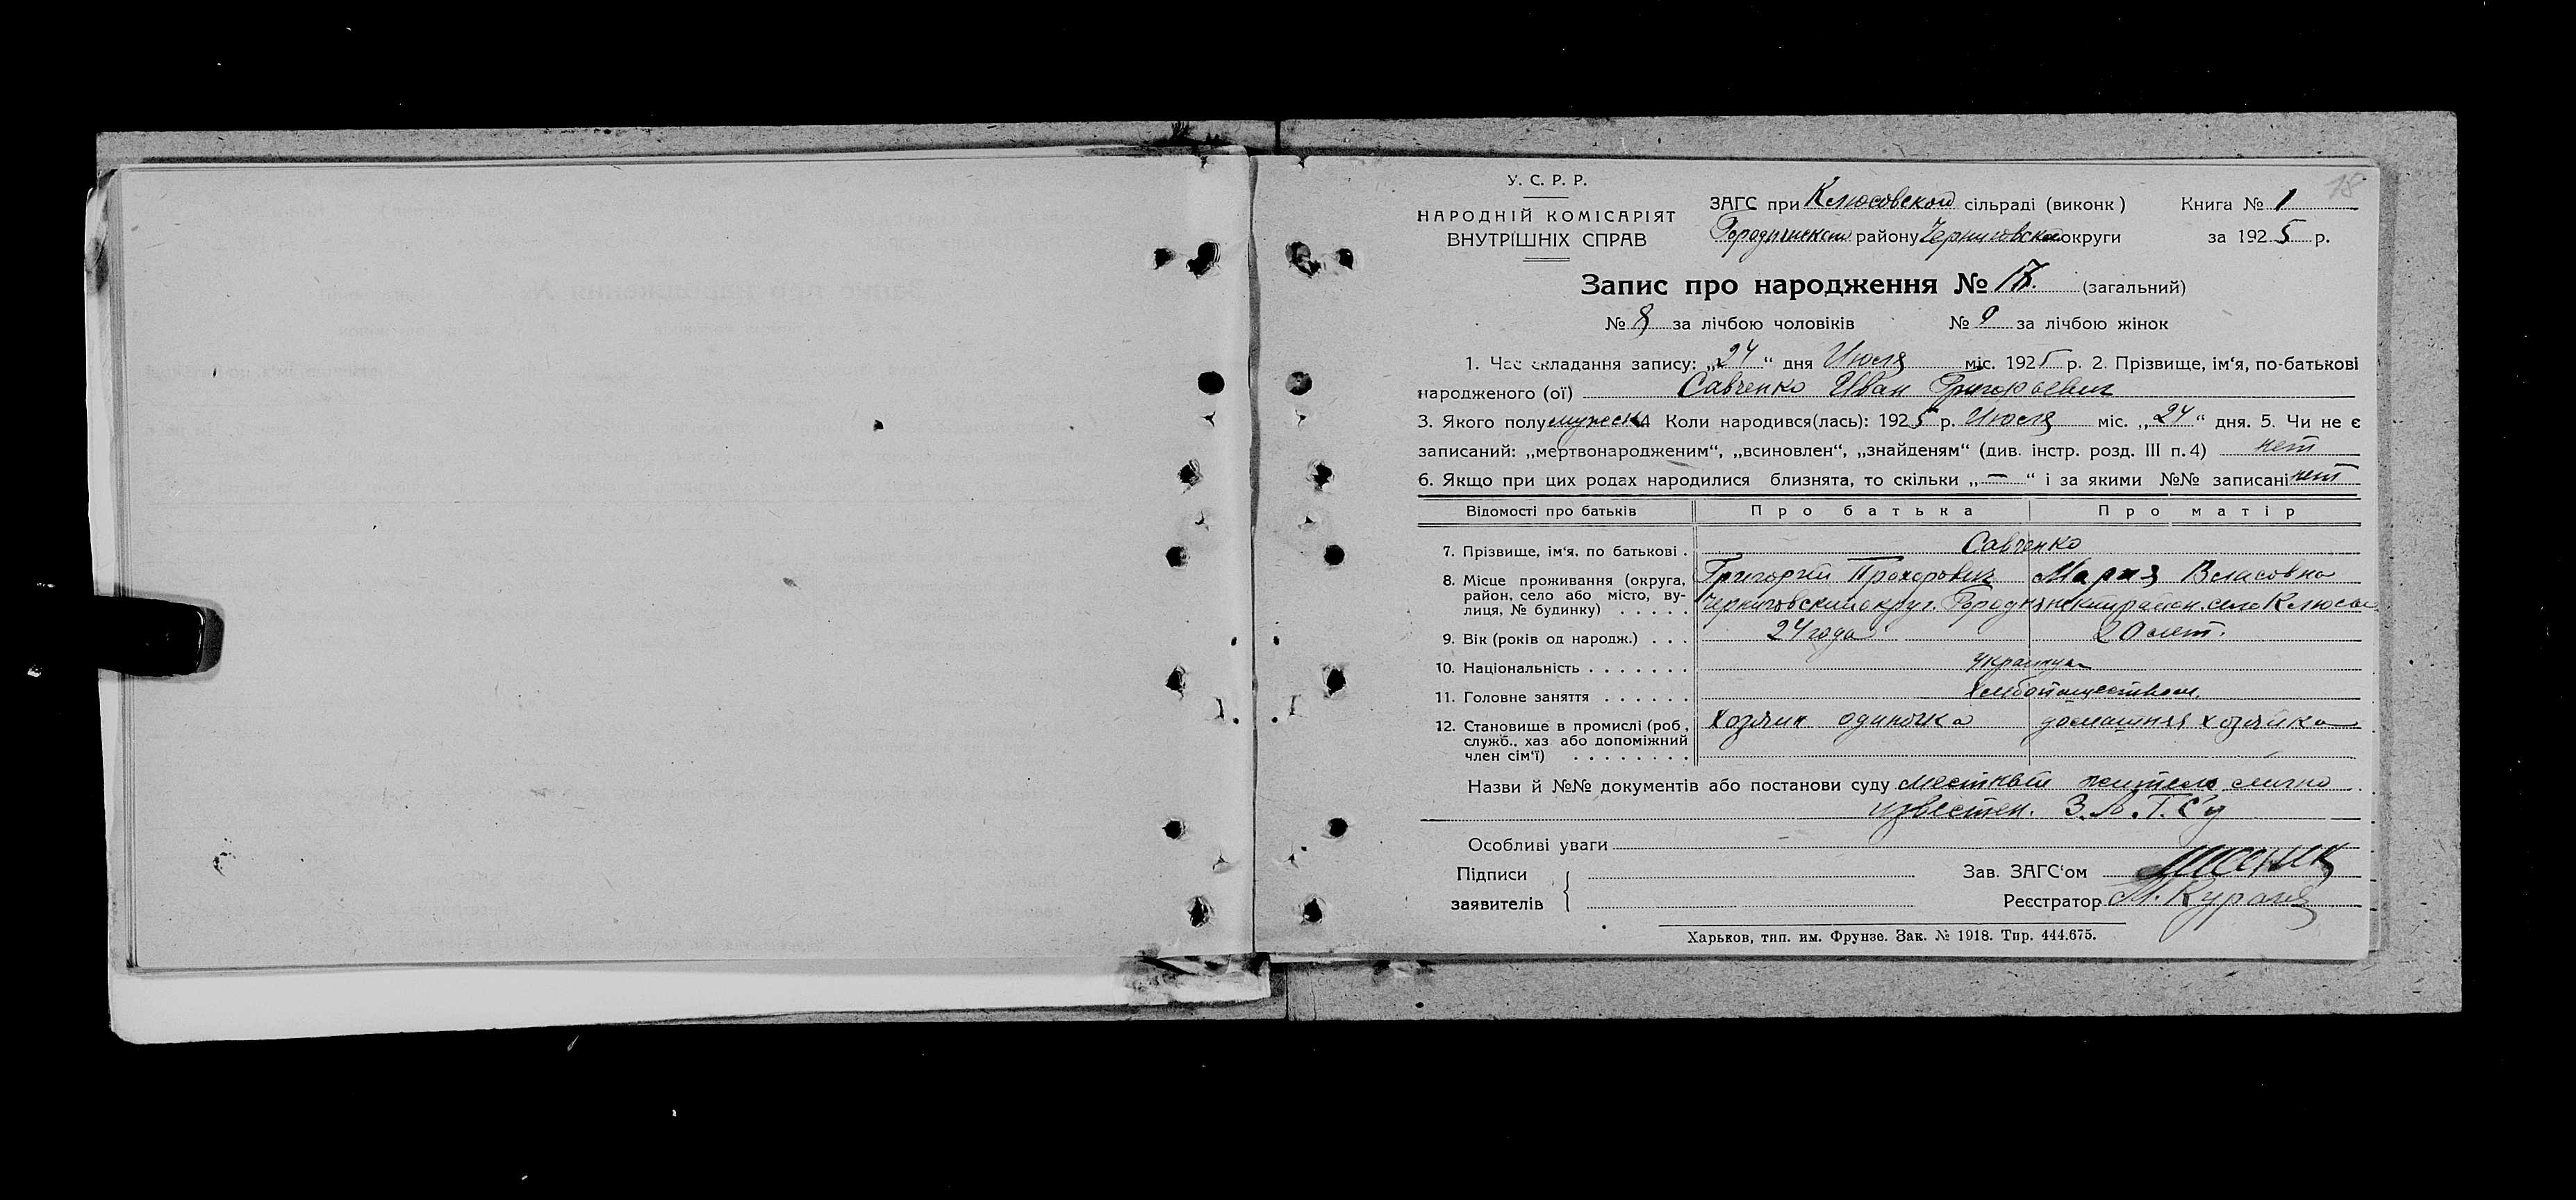 18
У. С. Р. Р.
НАРОДНІЙ КОМІСАРІЯТ
ВНУТРІШНІХ СПРАВ
ЗАГС при Клюсовском сільраді (виконк) Книга № 1
Городнянском району Черниговской округи за 1925 р.
Запис про народження № 17. (загальний)
№ 8 за лічбою чоловіків № 9 за лічбою жінок
1. Час складання запису: „24“ дня Июля міс. 1925 р. 2. Прізвище, ім‘я, по-батькові
народженого (ої) Савченко Иван Григорьевич
3. Якого полу мужеска 4 Коли народився(лась): 1925 р. Июля міс. „24“ дня. 5. Чи не є
записаний: „мертвонародженим“, „всиновлен“, „знайденям“ (див. інстр. розд. III п. 4) нет
6. Якщо при цих родах народилися близнята, то скільки „—“ і за якими №№ записані нет
Відомості про батьків Про батька Про матір
7. Прізвище, ім‘я, по батькові . Савченко
Григорий Прохорович Мария Власовна
8. Місце проживання (округа,
район, село або місто, ву-
лиця, № будинку) . . . . . Черниговский округ. Городнянский район. село Клюсы
9. Вік (років од народж.) . . . 24 года 20 лет.
10. Національність . . . . . . . украинцы
11. Головне заняття . . . . . . хлебопашеством.
12. Становище в промислі (роб.,
служб., хаз або допоміжний
член сім‘ї) . . . . . . . . Хозяин одиночка домашняя хозяйка
Назви й №№ документів або постанови суду местный житель лично
известен. З.А.Г.С'у
Особливі уваги
Підписи
заявителів
Зав. ЗАГС‘ом
Реєстратор М.
Харьков, тип. им. Фрунзе. Зак. № 1918. Тир. 444.675.